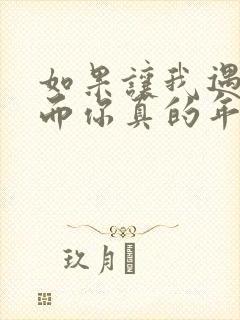 如果讓我遇
而你真的年
玖月